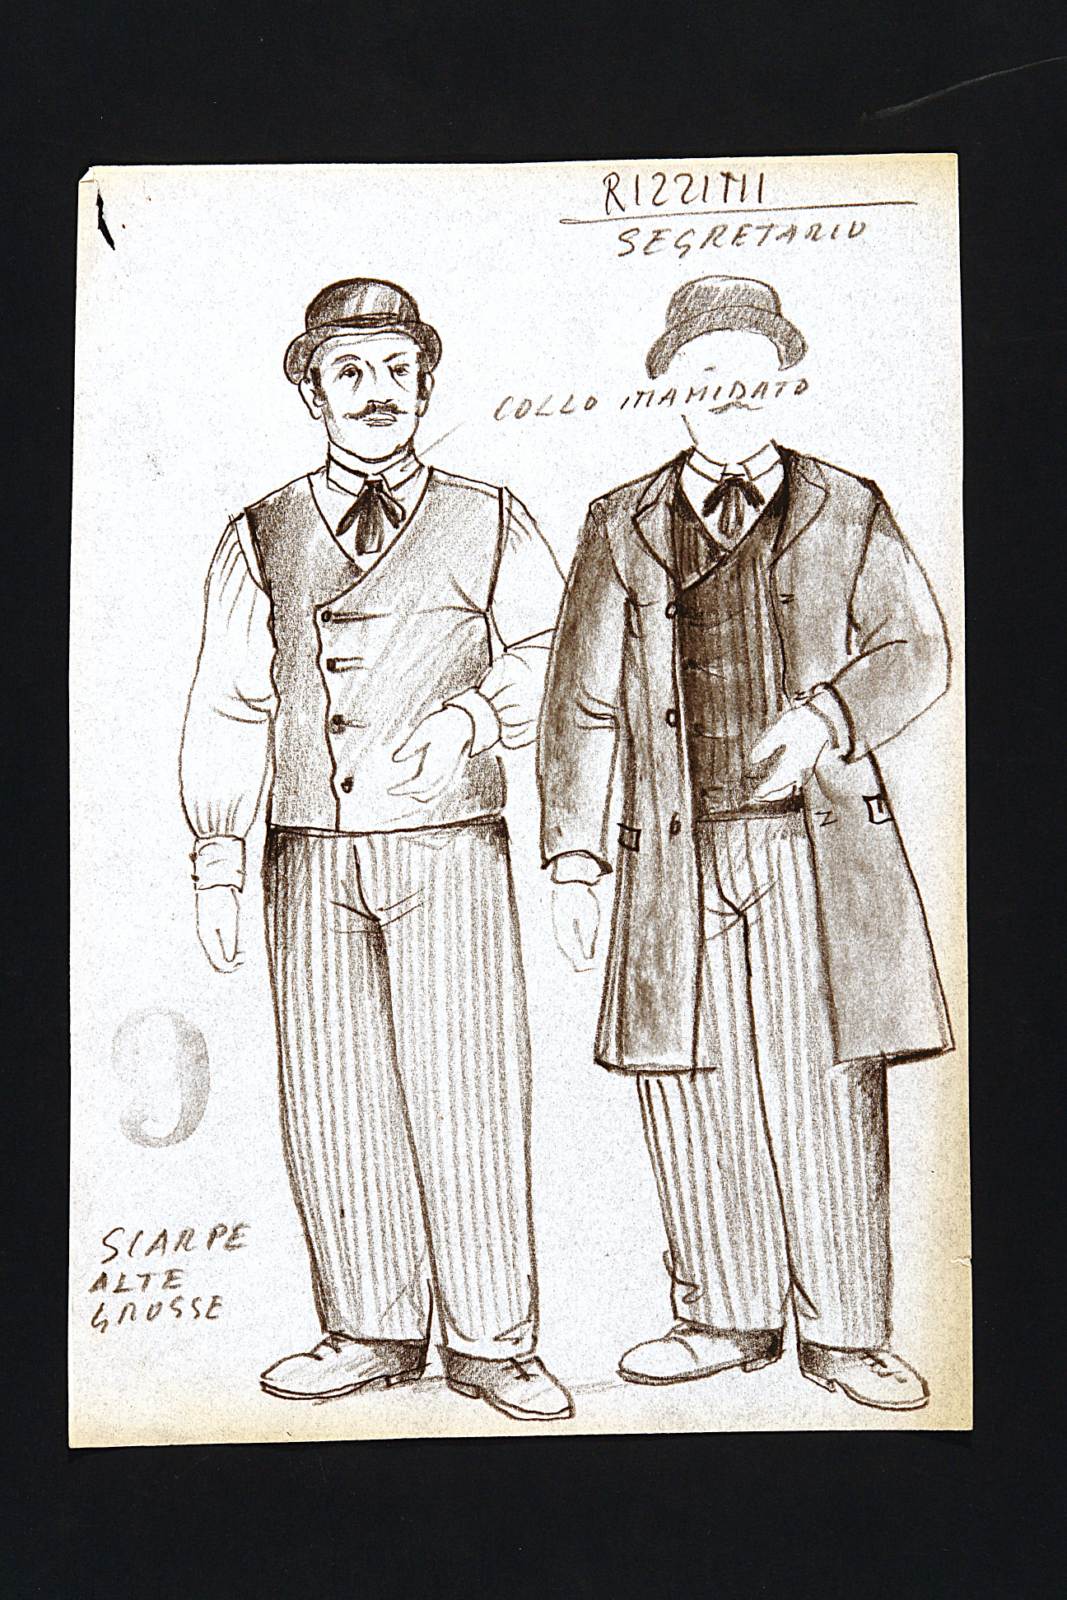 RIZZINI
SEGRETARIO
COLLO INAMIDATO
9
SCARPE
ALTE
GROSSE